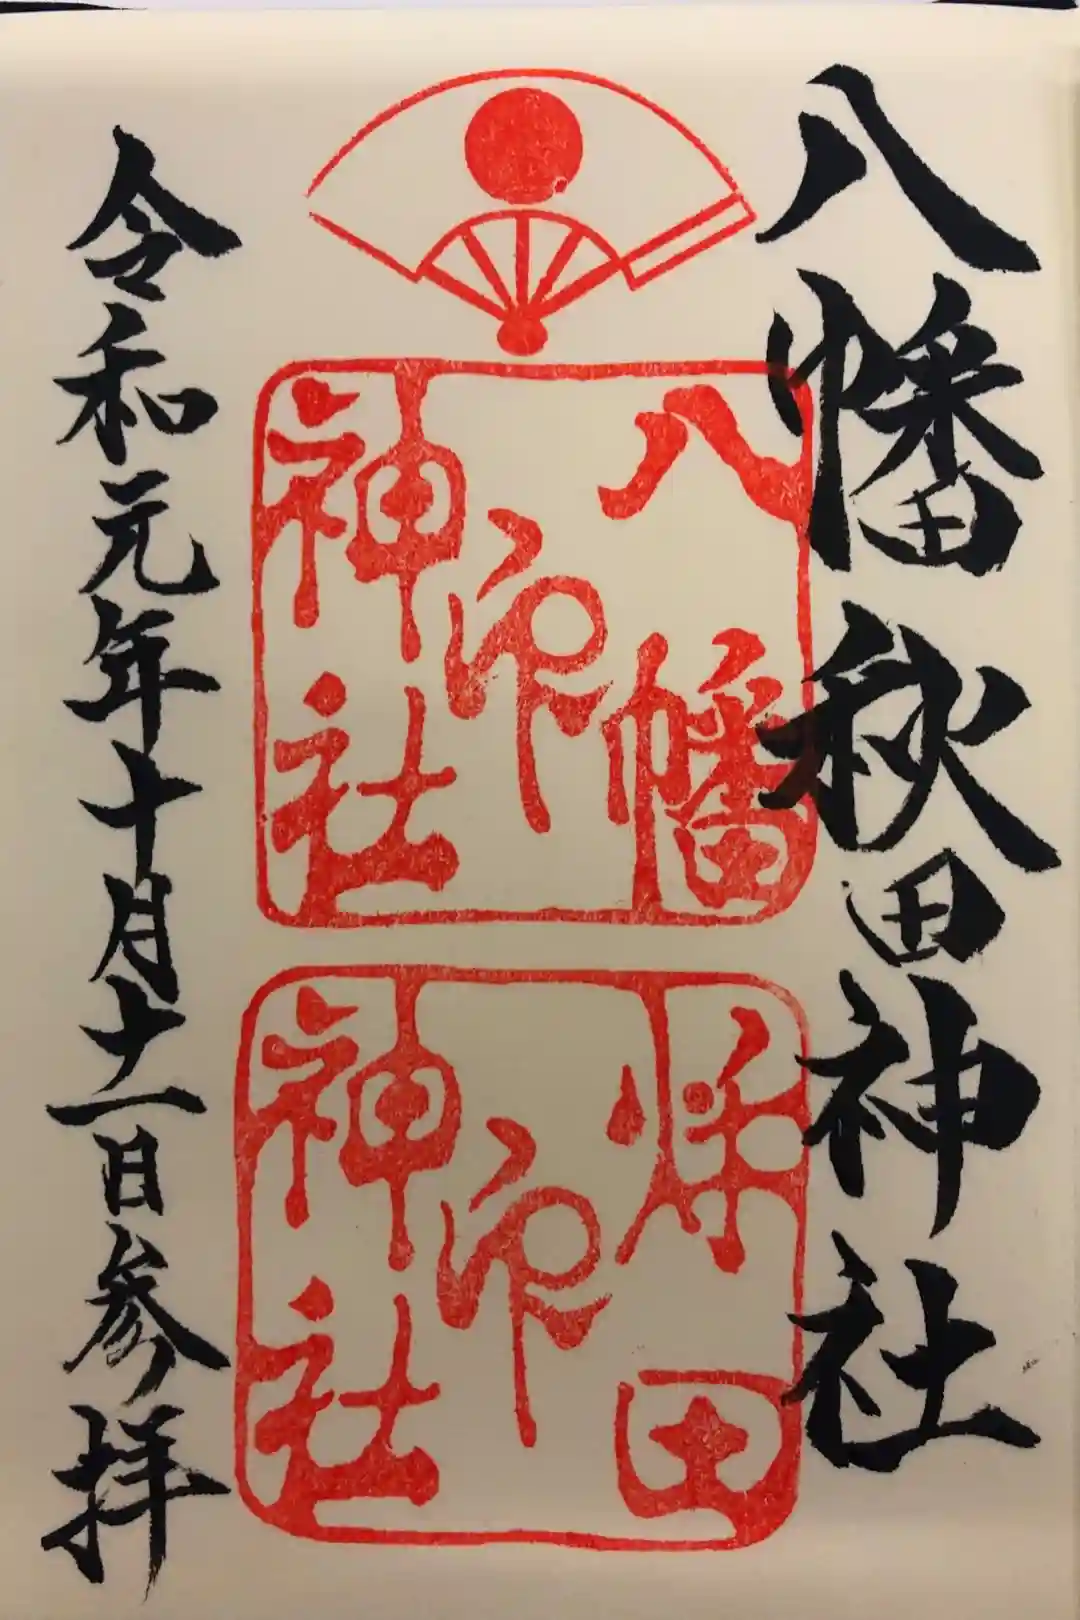 八幡秋田神社
八幡
印
神社
秋田
印
神社
令和元年十月十一日参拝